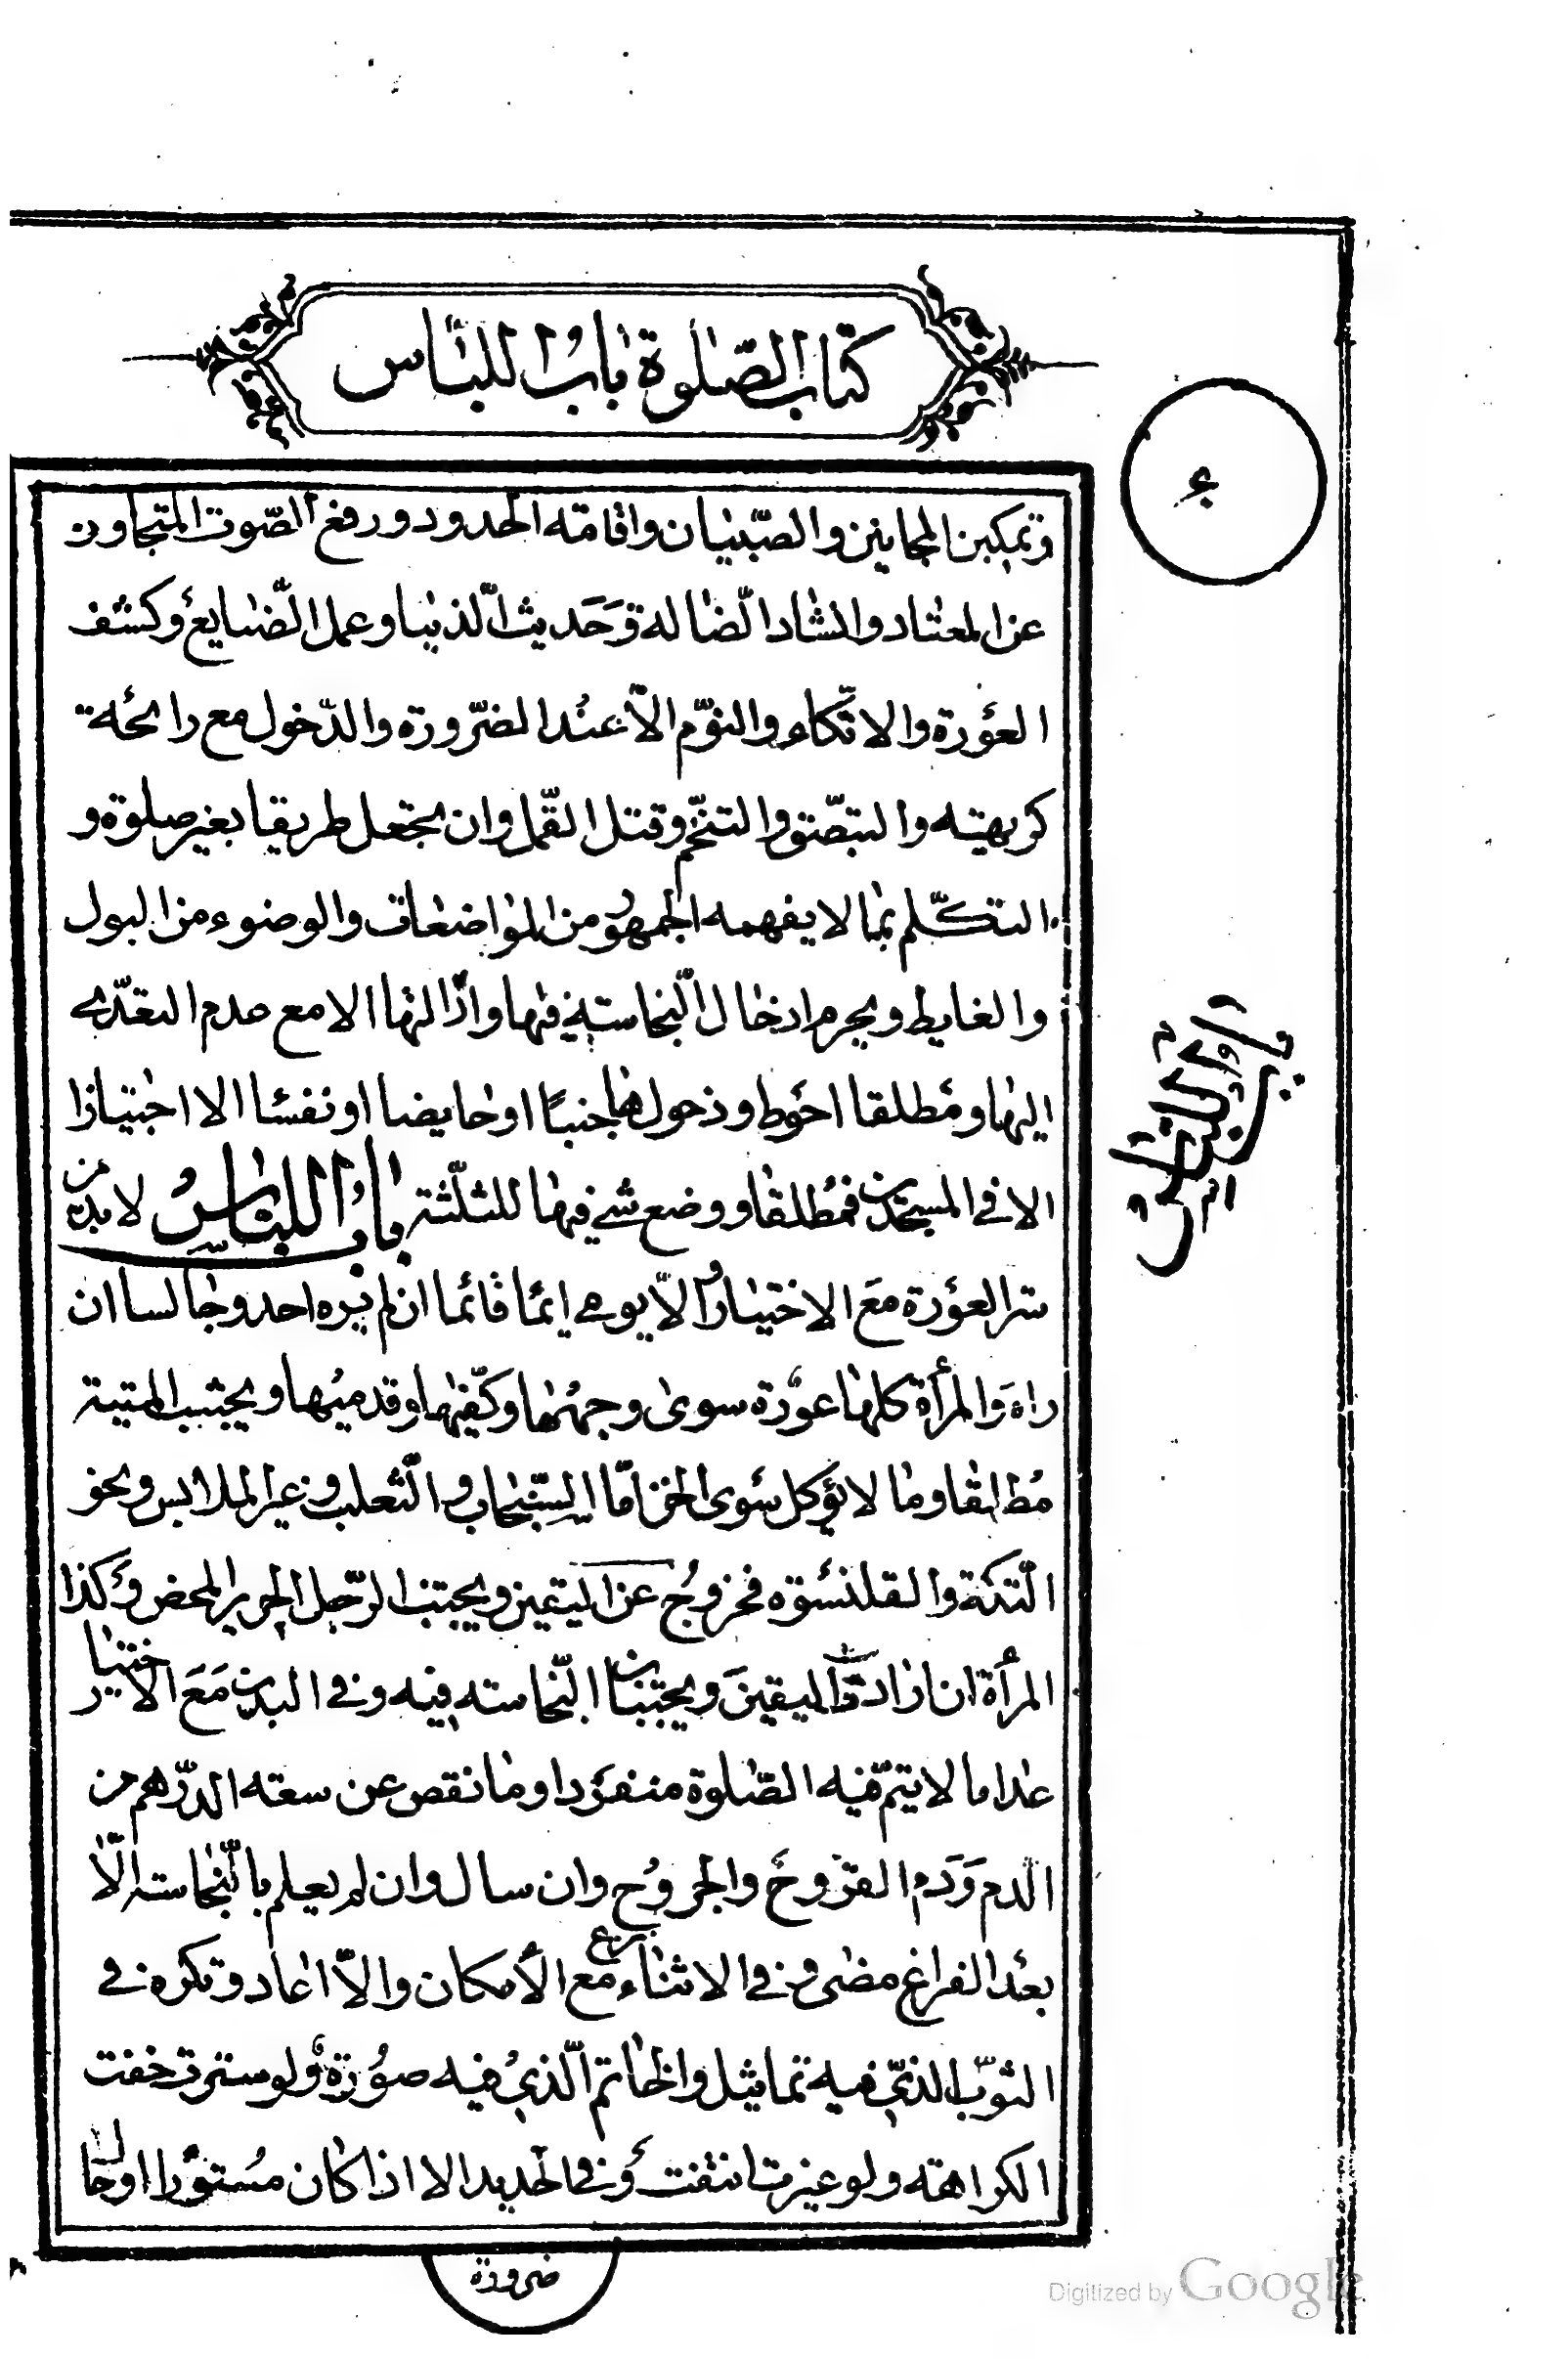 كتاب الصلوة باب اللباس
وتمكين المجانين والصبيان واقامة الحدود ورفع الصوت المتجاوز
عن المعتاد وانشاد الضالة وحديث الدنيا وعمل الصنايع وكشف
العورة والاتكاء والنوم الا عند الضرورة والدخول مع رائحة
كريهة والتبصق والتنخم وقتل القمل وان يجعل طريقا بغير صلوة و
التكلم بما لا يفهمه الجمهور من المواضعات والوضوء من البول
والغايط ويحرم ادخال النجاسة فيها وازالتها الا مع عدم التعدى
اليها ومطلقا احوط ودخولها جنبا او حايضا او نفسا الا اجتيازا
الا فى المسجدين فمطلقا ووضع شئ فيها للثلثة باب اللباس لا بد من
ستر العورة مع الاختيار والا يومى ايماء قائما ان لم يره احد وجالسا ان
راه والمرأة كلها عورة سوى وجهها وكفيها وقدميها ويجتنب الميتة
مطلقا وما لا يؤكل سوى الخز اما السنجاب والثعلب وغير الملابس ونحو
التكة والقلنسوة فخروج عن اليقين ويجتنب الرجل الحرير المحض وكذا
المرأة ان ارادت اليقين ويجتنبان النجاسة فيه وفى البدن مع الاختيار
عدا ما لا يتم فيه الصلوة منفردا وما نقص عن سعة الدرهم من
الدم ودم القروح والجروح وان سال وان لم يعلم بالنجاسة الا
بعد الفراغ مضى وفى الاثناء نزع مع الأمكان والا اعاد وتكره فى
الثوب الذى فيه تماثيل والخاتم الذى فيه صورة ولو سترت خفت
الكراهة ولو غيرت انتفت وفى الحديد الا اذا كان مستورا او حال
ضرورة
Digitized by Google